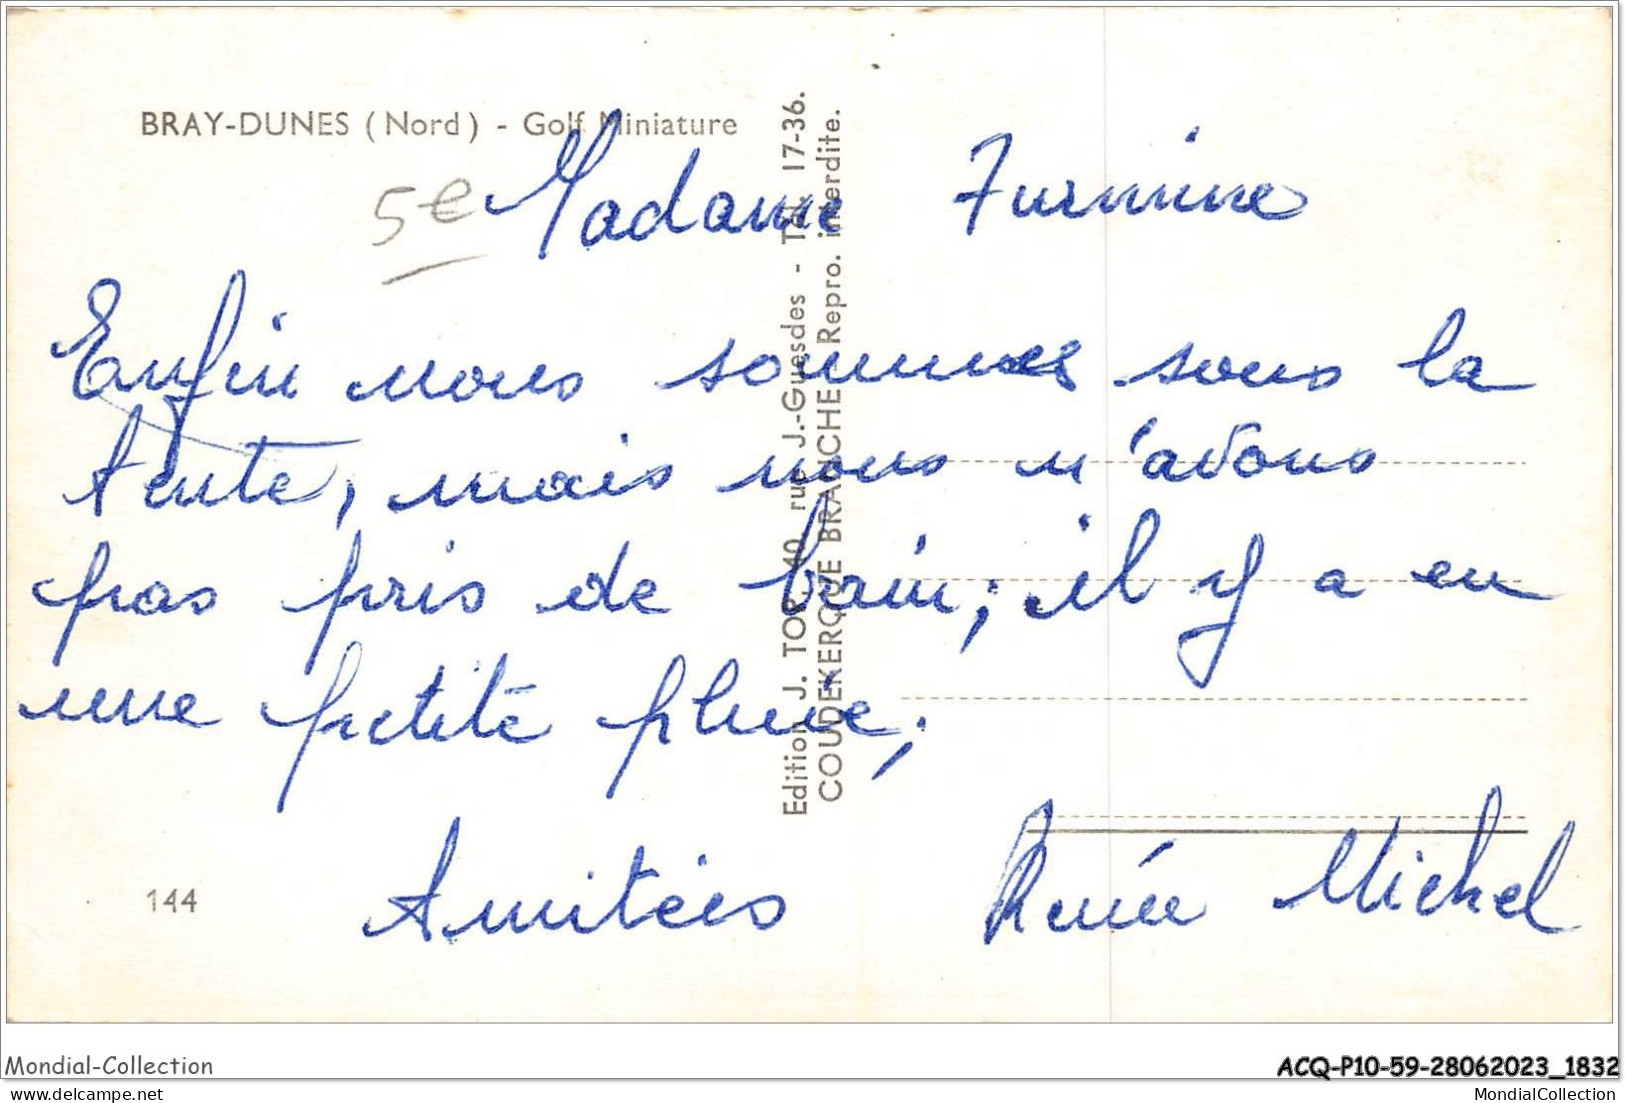 BRAY-DUNES (Nord) - Golf Miniature
5€
Madame Furmine
Enfin nous sommes sous la
tente, mais nous n'avons
pas pris de bain; il y a eu
une petite pluie;
Amitiés Renée Michel
144
Edition J. TOP, 40, rue J.-Guesdes - Tél. 17-36.
COUDEKERQUE BRANCHE Repro. interdite.
Mondial-Collection
ACQ-P10-59-28062023_1832
delcampe.net
MondialCollection